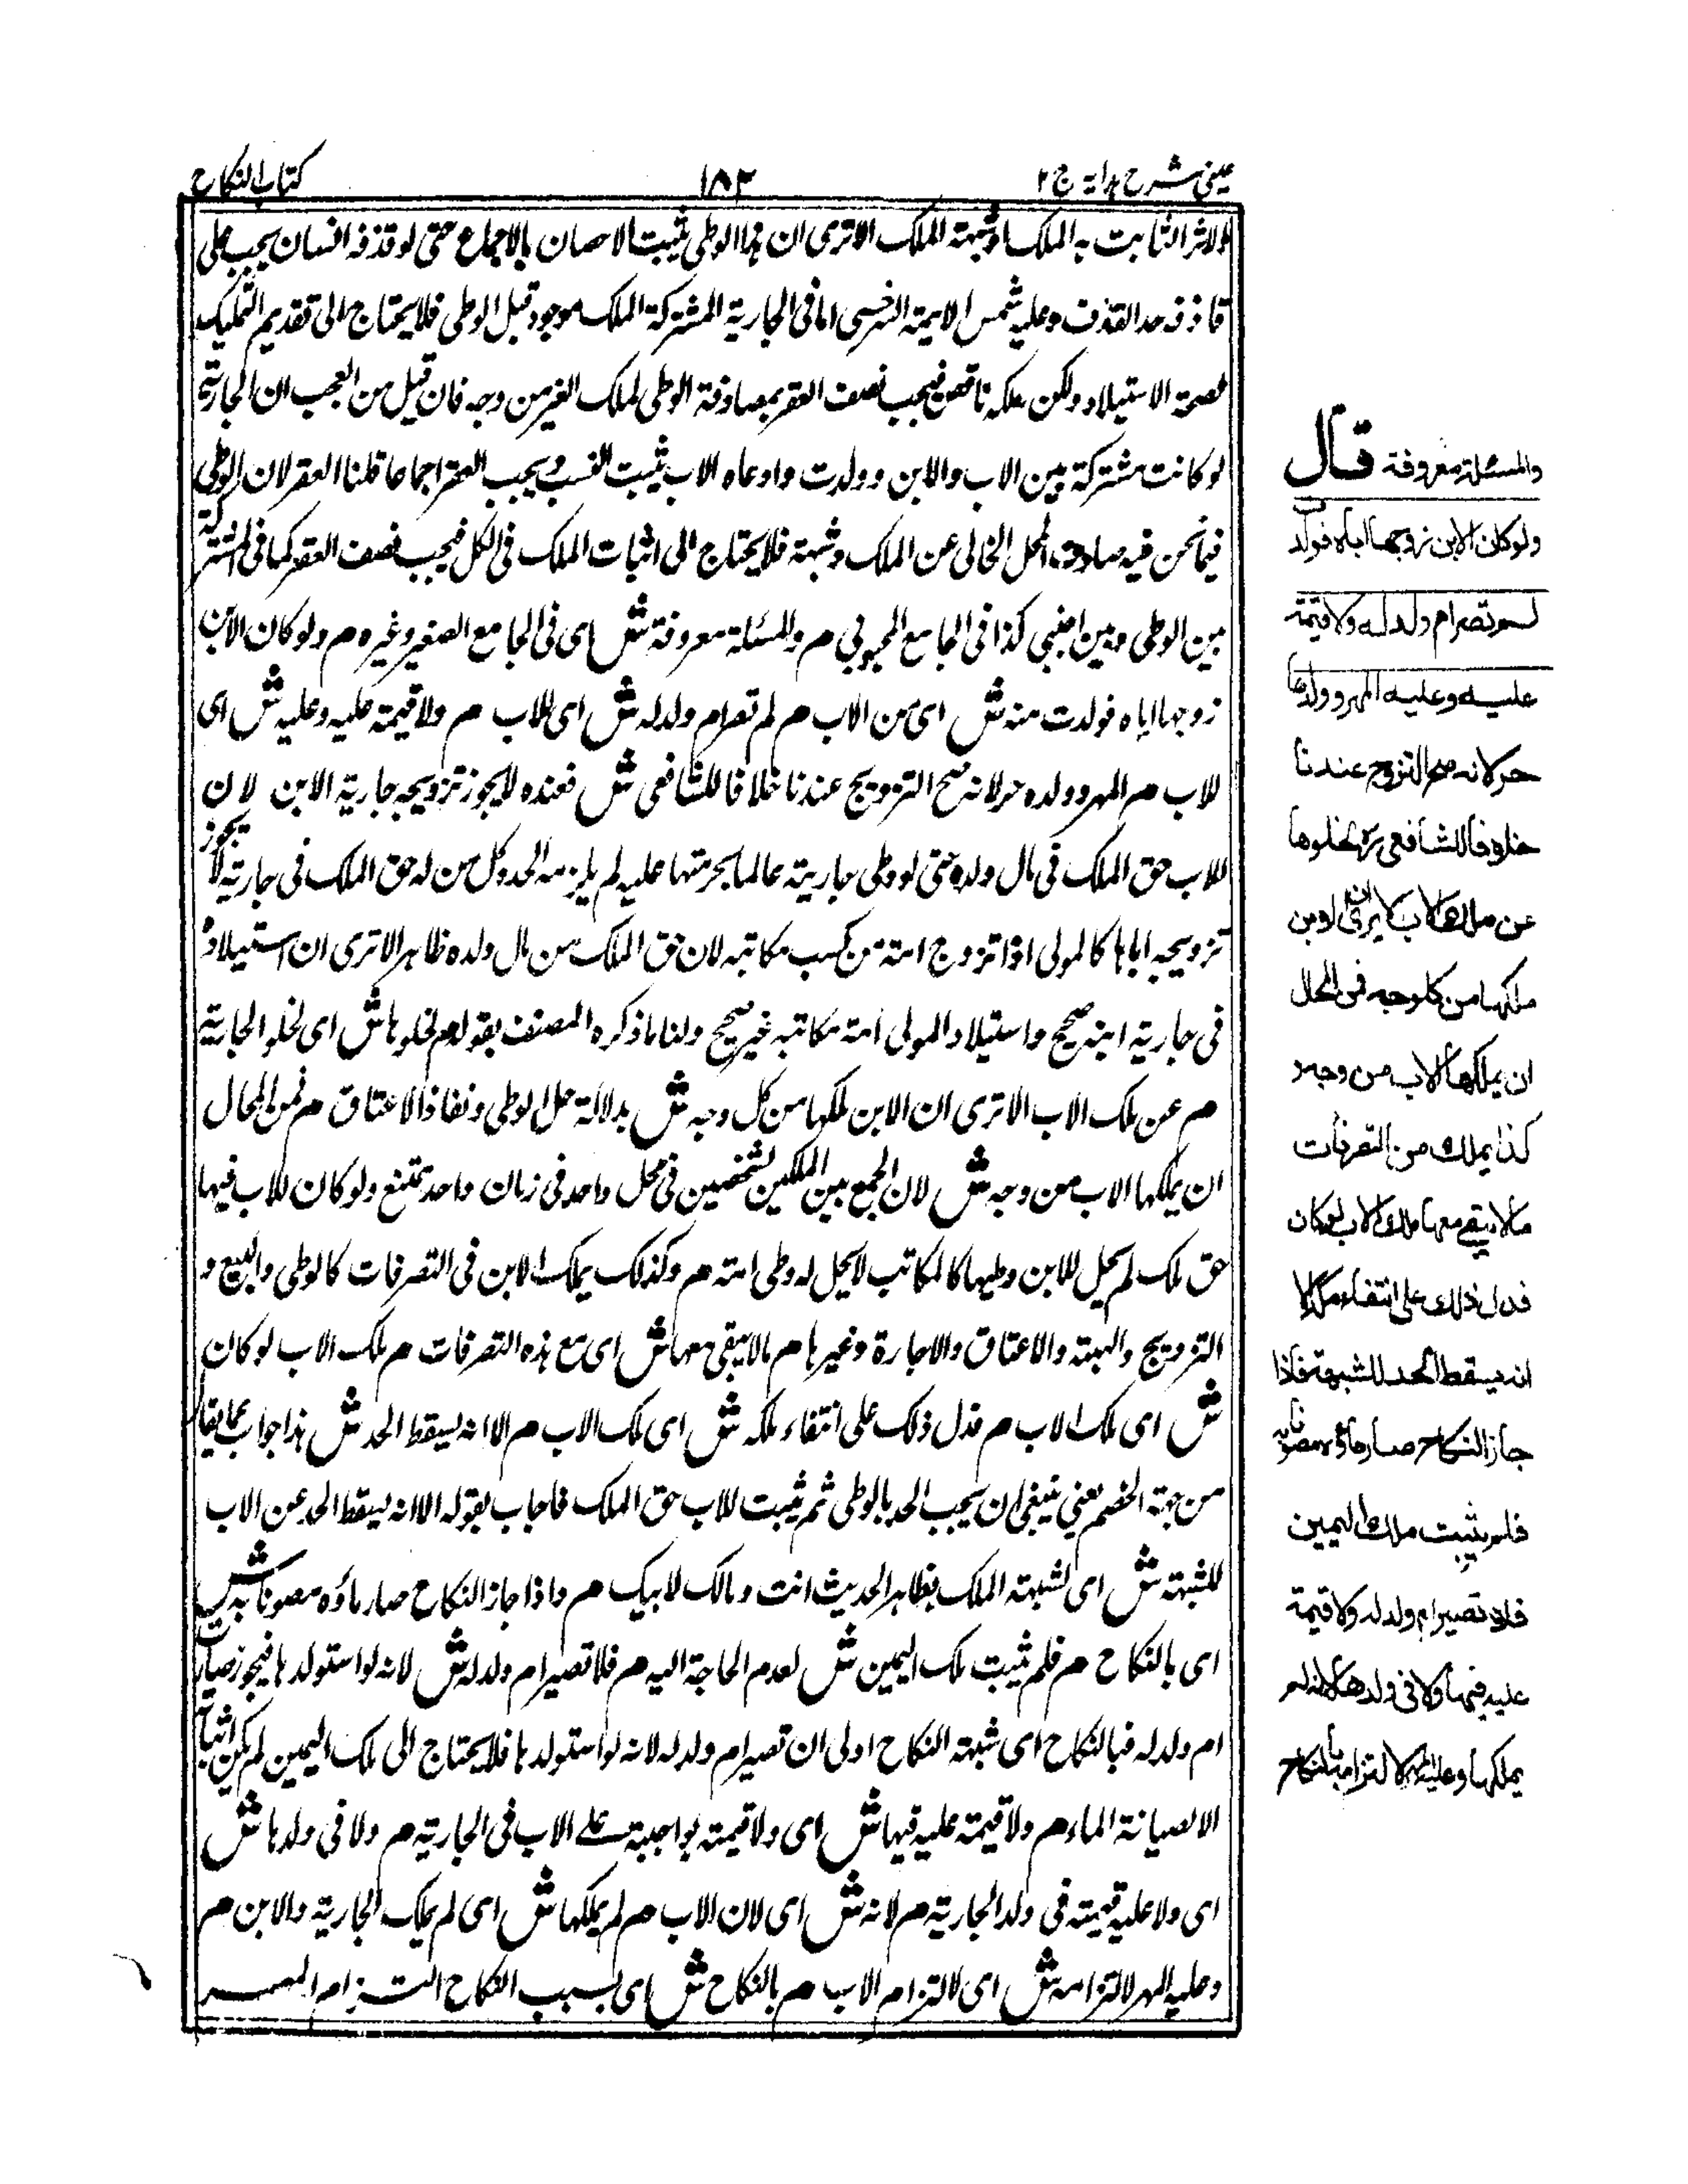 عینی شرح ہدایہ ج ۲
۱۸۳
کتاب النکاح
ولاثر الثابت به الملک او شبهة الملک الا تری ان هذا الوطی یثبت الاحصان بالاجماع حتی لو قذفه انسان یجب علی
قاذفه حد القذف وعلیه شمس الایمة السرخسی اما فی الجاریة المشترکة الملک موجود قبل الوطی فلا یحتاج الی تقدیم التملیک
لصحة الاستیلاد ولکن ملکه ناقص فیجب نصف العقر بمصادفة الوطی لملک الغیر من وجه فان قیل من العجب ان الجاریة
لو کانت مشترکة بین الاب والابن وولدت وادعاه الاب یثبت النسب ویجب العقر اجماعا قلنا العقر لان الوطی
فیما نحن فیه صادف المحل الخالی عن الملک وشبهة فلا یحتاج الی اثبات الملک فی الکل فیجب نصف العقر کما فی المشترکة
بین الوطی وبین اجنبی کذا فی الجامع المحبوبی م والمسئلة معروفة ش ای فی الجامع الصغیر وغیره م ولو کان الابن
زوجها ایاه فولدت منه ش ای من الاب م لم تصر ام ولد له ش ای للاب م ولا قیمة علیه وعلیه ش ای
للاب م المهر وولده حر لانه صح التزویج عندنا خلافا للشافعی ش فعنده لا یجوز تزویجه جاریة الابن لان
للاب حق الملک فی مال ولده حتی لو وطی جاریته عالما بحرمتها علیه لم یلزمه الحد وکل من له حق الملک فی جاریة لا یجوز
تزویجه ایاها کالمولی اذا تزوج امته من کسب مکاتبه لان حق الملک من مال ولده ظاهر الا تری ان استیلاده
فی جاریة ابنه صحیح واستیلاد المولی امة مکاتبه غیر صحیح ولنا ما ذکره المصنف بقوله م لخلوها ش ای لخلو الجاریة
م عن ملک الاب الا تری ان الابن ملکها من کل وجه ش بدلالة حل الوطی ونفاذ الاعتاق م فمن المحال
ان یملکها الاب من وجه ش لان الجمع بین الملکین لشخصین فی محل واحد فی زمان واحد ممتنع ولو کان للاب فیها
حق ملک لم یحل للابن وطیها کالمکاتب لا یحل له وطی امته م وکذلک یملک الابن فی التصرفات کالوطی والبیع و
التزویج والهبة والاعتاق والاجارة وغیرها م ما لا یبقی معها ش ای مع هذه التصرفات م ملک الاب لو کان
ش ای ملک الاب م فدل ذلک علی انتفاء ملکه ش ای ملک الاب م الا انه یسقط الحد ش هذا جواب عما یقال
من جهة الخصم یعنی ینبغی ان یجب الحد بالوطی ثم یثبت للاب حق الملک فاجاب بقوله الا انه یسقط الحد عن الاب
للشبهة ش ای لشبهة الملک بظاهر الحدیث انت ومالک لابیک م واذا جاز النکاح صار ماؤه مصونا به ش
ای بالنکاح م فلم یثبت ملک الیمین ش لعدم الحاجة الیه م فلا تصیر ام ولد له ش لانه لو استولدها فیجوز صارت
ام ولد له فبالنکاح ای شبهة النکاح اولی ان تصیر ام ولد له لانه لو استولدها فلا یحتاج الی ملک الیمین لم یکن اثباته
الا لصیانة الماء م ولا قیمة علیه فیها ش ای ولا قیمة بواجبة علی الاب فی الجاریة م ولا فی ولدها ش
ای ولا علیه قیمته فی ولد الجاریة م لانه ش ای لان الاب م لم یملکها ش ای لم یملک الجاریة والابن م
وعلیه المهر لالتزامه ش ای لالتزام الاب م بالنکاح ش ای بسبب النکاح التزام المهر
والمسئلة معروفة قال
ولو كان الابن زوجها اباه فولدت
لم تصر ام ولد له ولا قيمة
عليه وعليه المهر وولدها
حر لانه صح التزوج عندنا
خلافا للشافعي لخلوها
عن ملك الاب الا يرى ان الابن
ملكها من كل وجه فمن المحال
ان يملكها الاب من وجه و
كذا يملك من التصرفات
ما لا يبقى معها ملك الاب لو كان
فدل ذلك على انتفاء ملكه الا
انه يسقط الحد للشبهة فاذا
جاز النكاح صار ماؤه مصونا به
فلم يثبت ملك اليمين
فلا تصير ام ولد له ولا قيمة
عليه فيها ولا في ولدها لانه لم
يملكها وعليه المهر لالتزامه بالنكاح